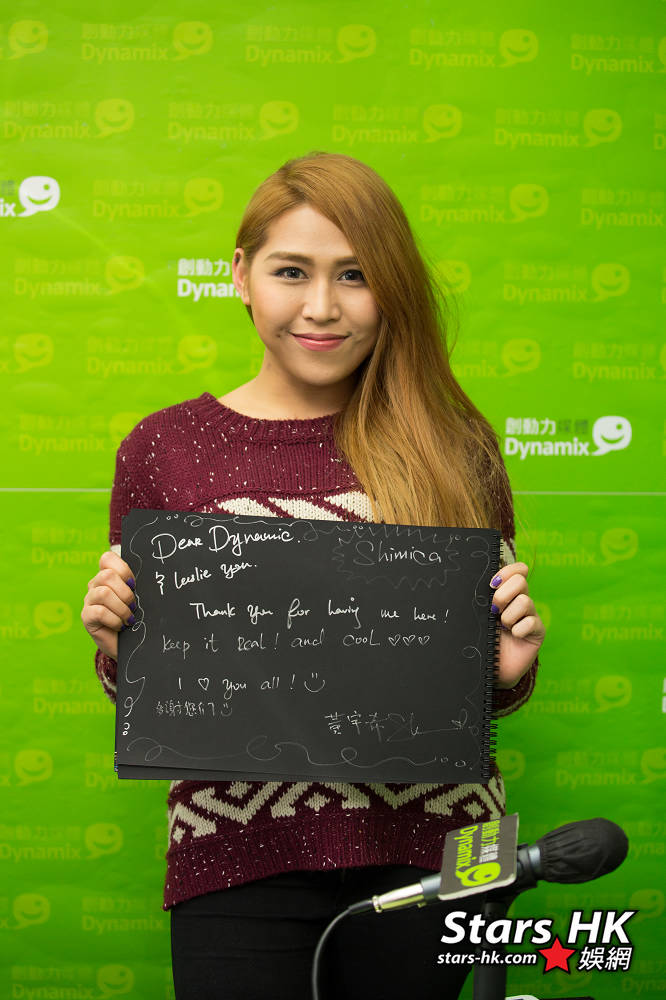 創動力媒體
Dynamix
Dear Dynamic.
& Leslie you.
Shimica
Thank you for having me here!
keep it Real! and cool ♡♡♡
I ♡ you all! ☺
黃宇希
創動力媒體
Dynamix
Stars HK
stars-hk.com 娛網